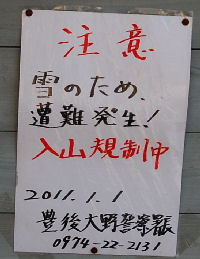 注意
雪のため、
遭難発生!
入山規制中
2011.1.1
豊後大野警察署長
0974-22-2131